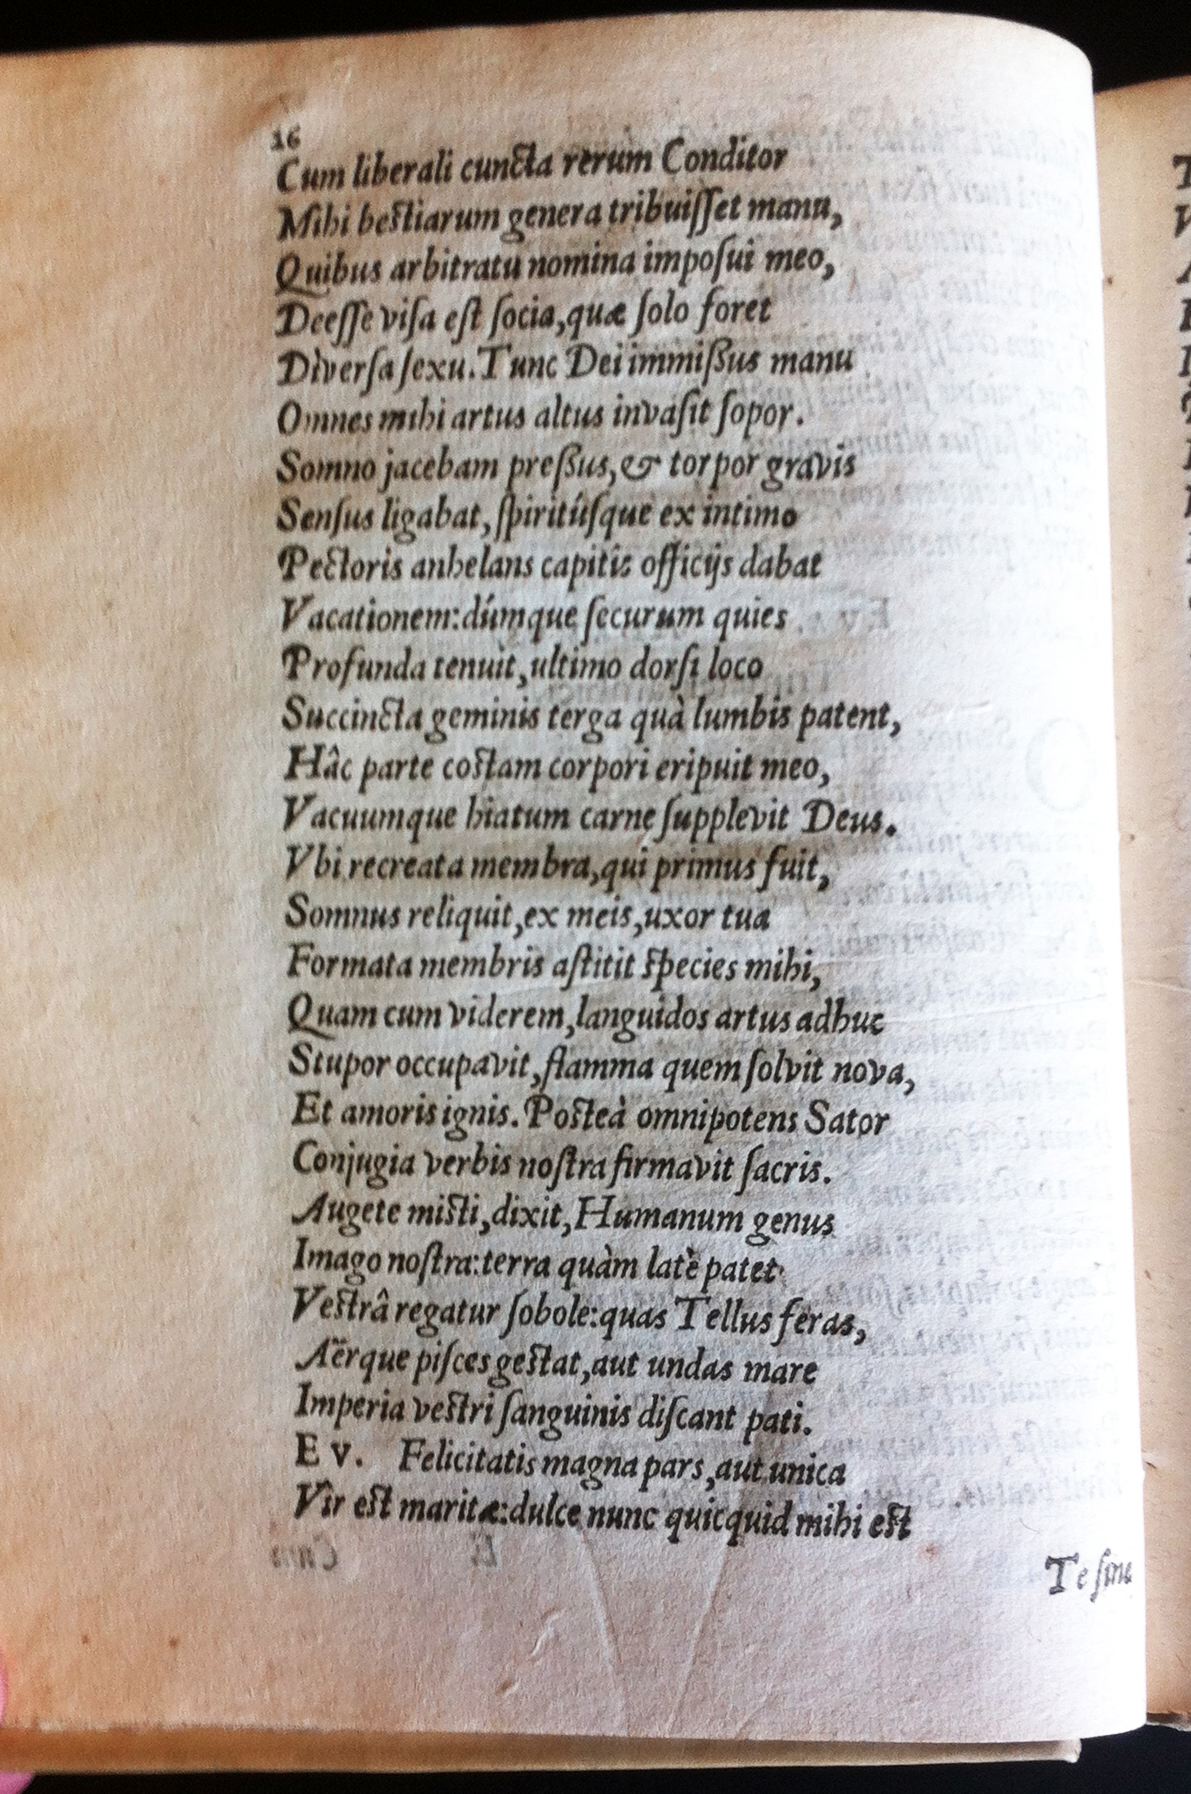 16
Cum liberali cuncta rerum Conditor
Mihi bestiarum genera tribuiſſet manu,
Quibus arbitratu nomina impoſui meo,
Deeſſe viſa eſt ſocia, quæ ſolo foret
Diverſa ſexu. Tunc Dei immiſſus manu
Omnes mihi artus altus invaſit ſopor.
Somno jacebam preſſus, & torpor gravis
Senſus ligabat, ſpiritúſque ex intimo
Pectoris anhelans capitis officijs dabat
Vacationem: dúmque ſecurum quies
Profunda tenuit, ultimo dorſi loco
Succincta geminis terga quà lumbis patent,
Hâc parte coſtam corpori eripuit meo,
Vacuumque hiatum carne ſupplevit Deus.
Vbi recreata membra, qui primus fuit,
Somnus reliquit, ex meis, uxor tua
Formata membris aſtitit ſpecies mihi,
Quam cum viderem, languidos artus adhuc
Stupor occupavit, flamma quem ſolvit nova,
Et amoris ignis. Poſteà omnipotens Sator
Conjugia verbis noſtra firmavit ſacris.
Augete miſti, dixit, Humanum genus
Imago noſtra: terra quàm latè patet
Veſtrâ regatur ſobole: quas Tellus feras,
Aërque piſces geſtat, aut undas mare
Imperia veſtri ſanguinis diſcant pati.
Ev. Felicitatis magna pars, aut unica
Vir eſt maritæ: dulce nunc quicquid mihi eſt
Te ſine